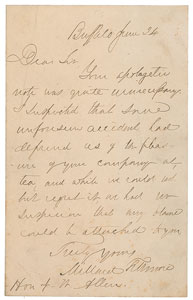 Buffalo June 24
Dear Sir
Your apologetic
note was quite unnecessary.
I suspected that some
unforeseen accident had
deprived us of the pleas-
ure of your company at
tea and while we could not
but regret it we had no
suspicion that any blame
could be attached to you
Truly yours
Millard Fillmore
Hon J. Allen